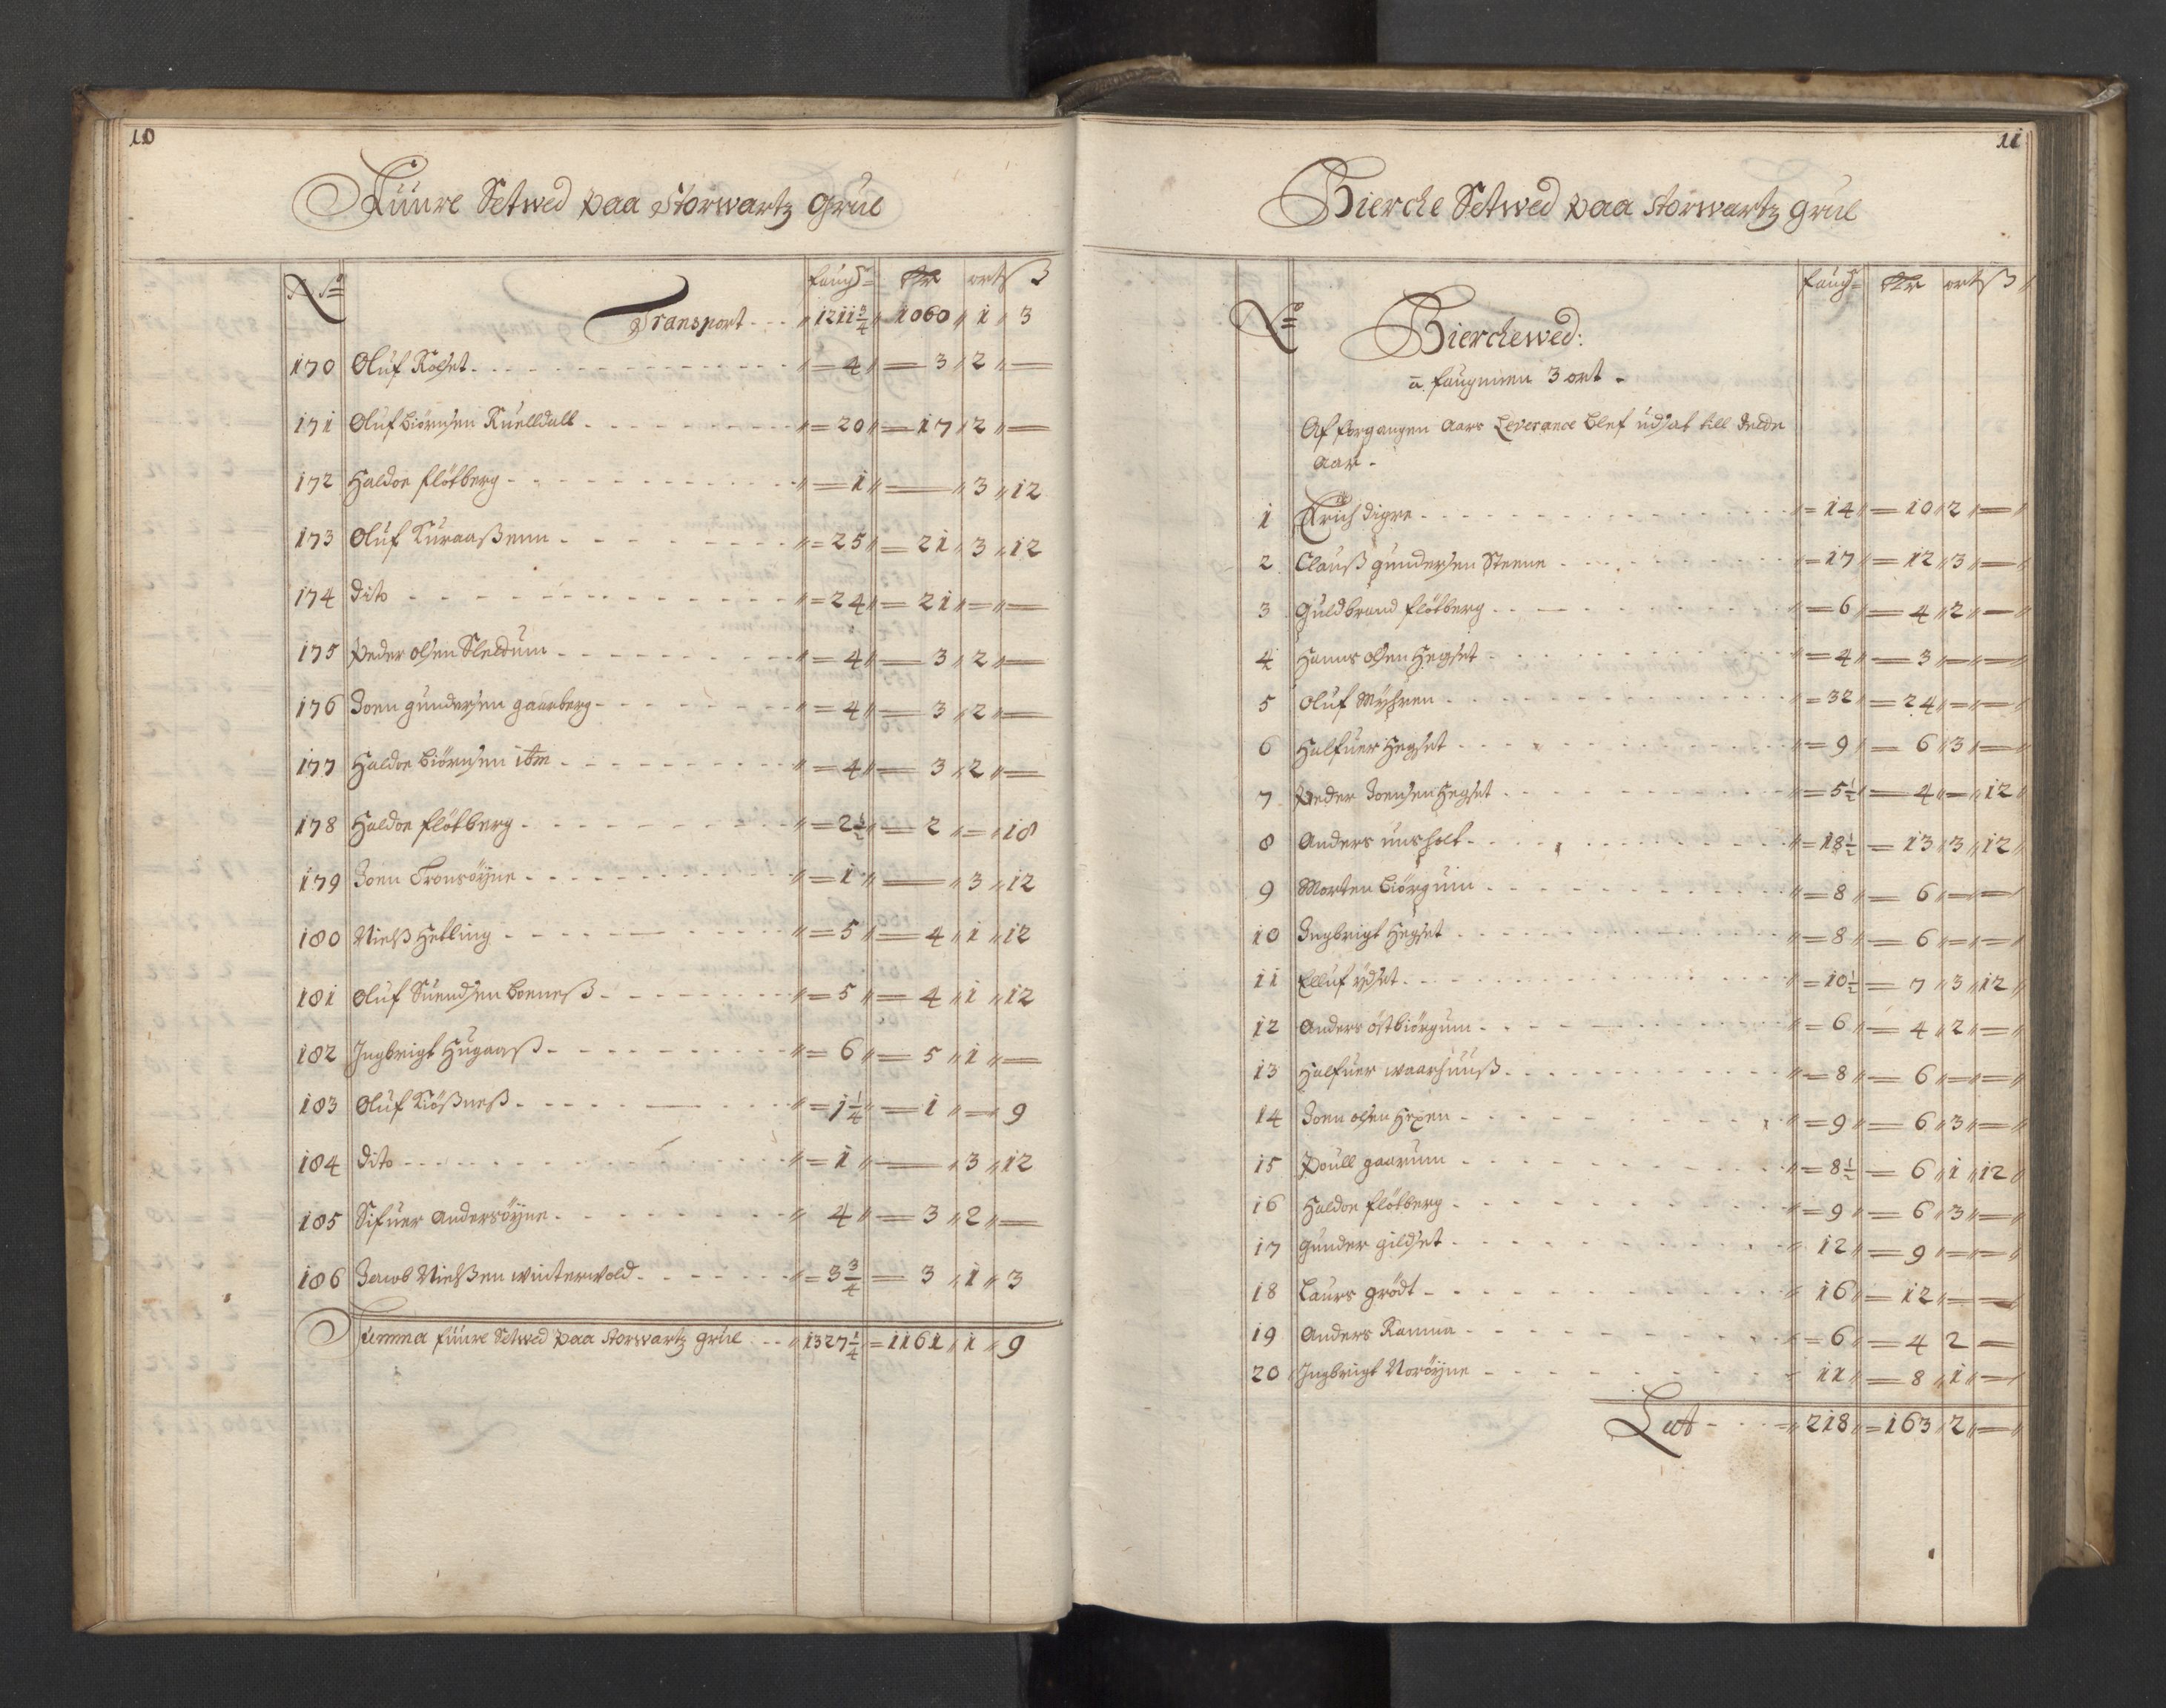 10
Fuure Setwed paa Storwartz Grue
No faugn Rdr ort ß
Transport - - - 1211 3/4 1060 1 3
170 Oluf Roset - 4 3 2 —
171 Oluf biörnsen Kuelldall - 20 17 2 —
172 Haldoe flötberg - 1 — 3 12
173 Oluf Kuraaßenn - 25 21 3 12
174 Dito - 24 21 — —
175 Peder olsen Slettum - 4 3 2 —
176 Joen gundersen gaarberg - 4 3 2 —
177 Haldoe biörnsen itm - 4 3 2 —
178 Haldoe flötberg - 2 1/2 2 — 18
179 Joen Tronsöyne - 1 — 3 12
180 Nielß Hetling - 5 4 1 12
181 Oluf Suendsen boeneß - 5 4 1 12
182 Ingbrigt Hugaaß - 6 5 1 —
183 Oluf Kiößneß - 1 1/4 1 — 9
184 Dito - 1 — 3 12
185 Sifuer Andersöyne - 4 3 2 —
186 Jacob Nielßen winterwold - 3 3/4 3 1 3
Summa fuure Setwed paa Storwartz grue - - 1327 1/4 1161 1 9
11
Bierche Setwed paa Storwartz grue
No faug Rdr ort ß
Bierchewed:
a faugnnen 3 ort -
Af forgangen Aars Leverance blef udsat till dette
Aar -
1 Erich digre - 14 10 2 —
2 Clauß gundersen Steene - 17 12 3 —
3 Guldbrand flötberg - 6 4 2 —
4 Hanns olsen Hegset - 4 3 — —
5 Oluf Myhren - 32 24 — —
6 Halfuer Hegset - 9 6 3 —
7 Peder Joensen Hegset - 5 1/2 4 — 12
8 Anders unsholt - 18 1/2 13 3 12
9 Morten biörguin - 8 6 — —
10 Ingbrigt Hegset - 8 6 — —
11 Elluf ydset - 10 1/2 7 3 12
12 Anders östbiörgum - 6 4 2 —
13 Halfuer waarhuuß - 8 6 — —
14 Joen olsen Hexen - 9 6 3 —
15 Poull gaarum - 8 1/2 6 1 12
16 Haldoe flötberg - 9 6 3 —
17 gunder gildset - 12 9 — —
18 Laurs grödt - 16 12 — —
19 Anders Ramna - 6 4 2 —
20 Ingbrigt Noröyne - 11 8 1 —
Lat - - 218 163 2 —